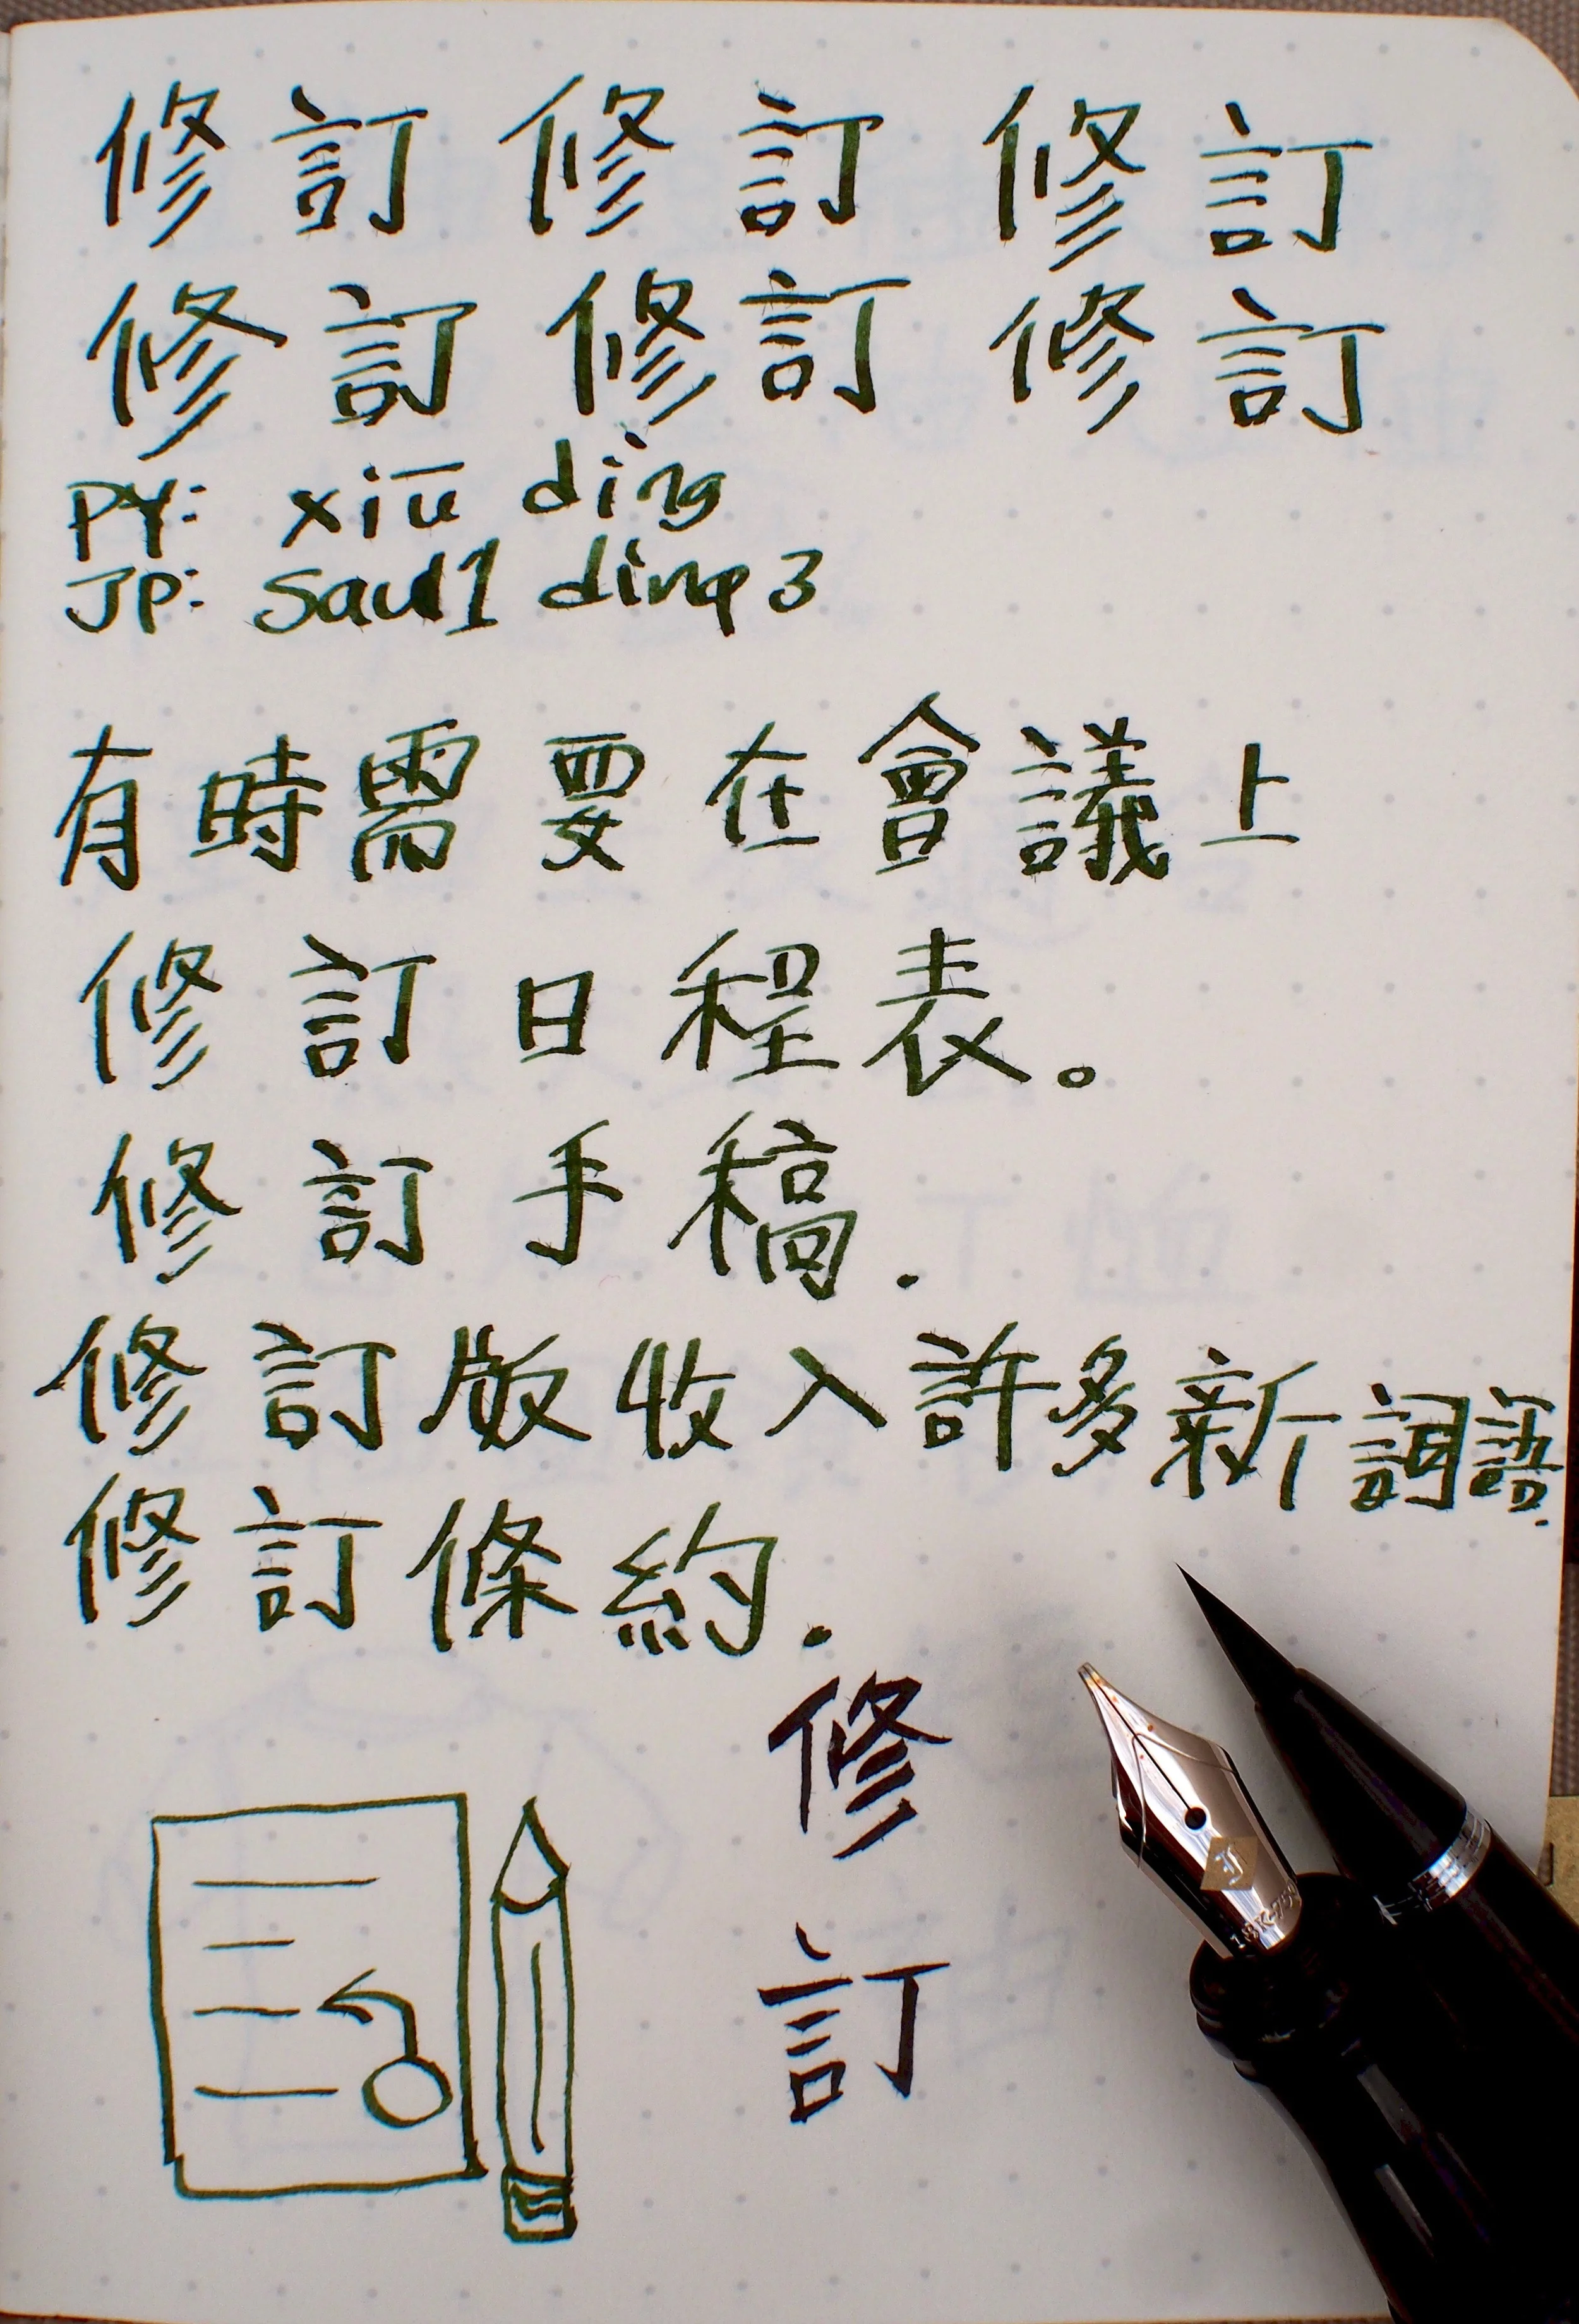 修訂 修訂 修訂
修訂 修訂 修訂
PY: xiū dìng
JP: sau1 ding3
有時需要在會議上
修訂日程表。
修訂手稿.
修訂版收入許多新詞語.
修訂條約.
修
訂
18K-750